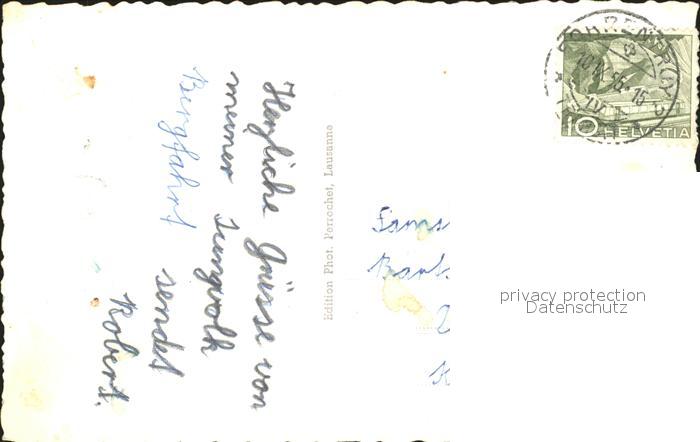 Herzliche Grüsse von
meiner Jungvolk
Bergfahrt sendet
Robert.
Edition Phot. Perrochet, Lausanne
10 HELVETIA
Fams
privacy protection
Datenschutz